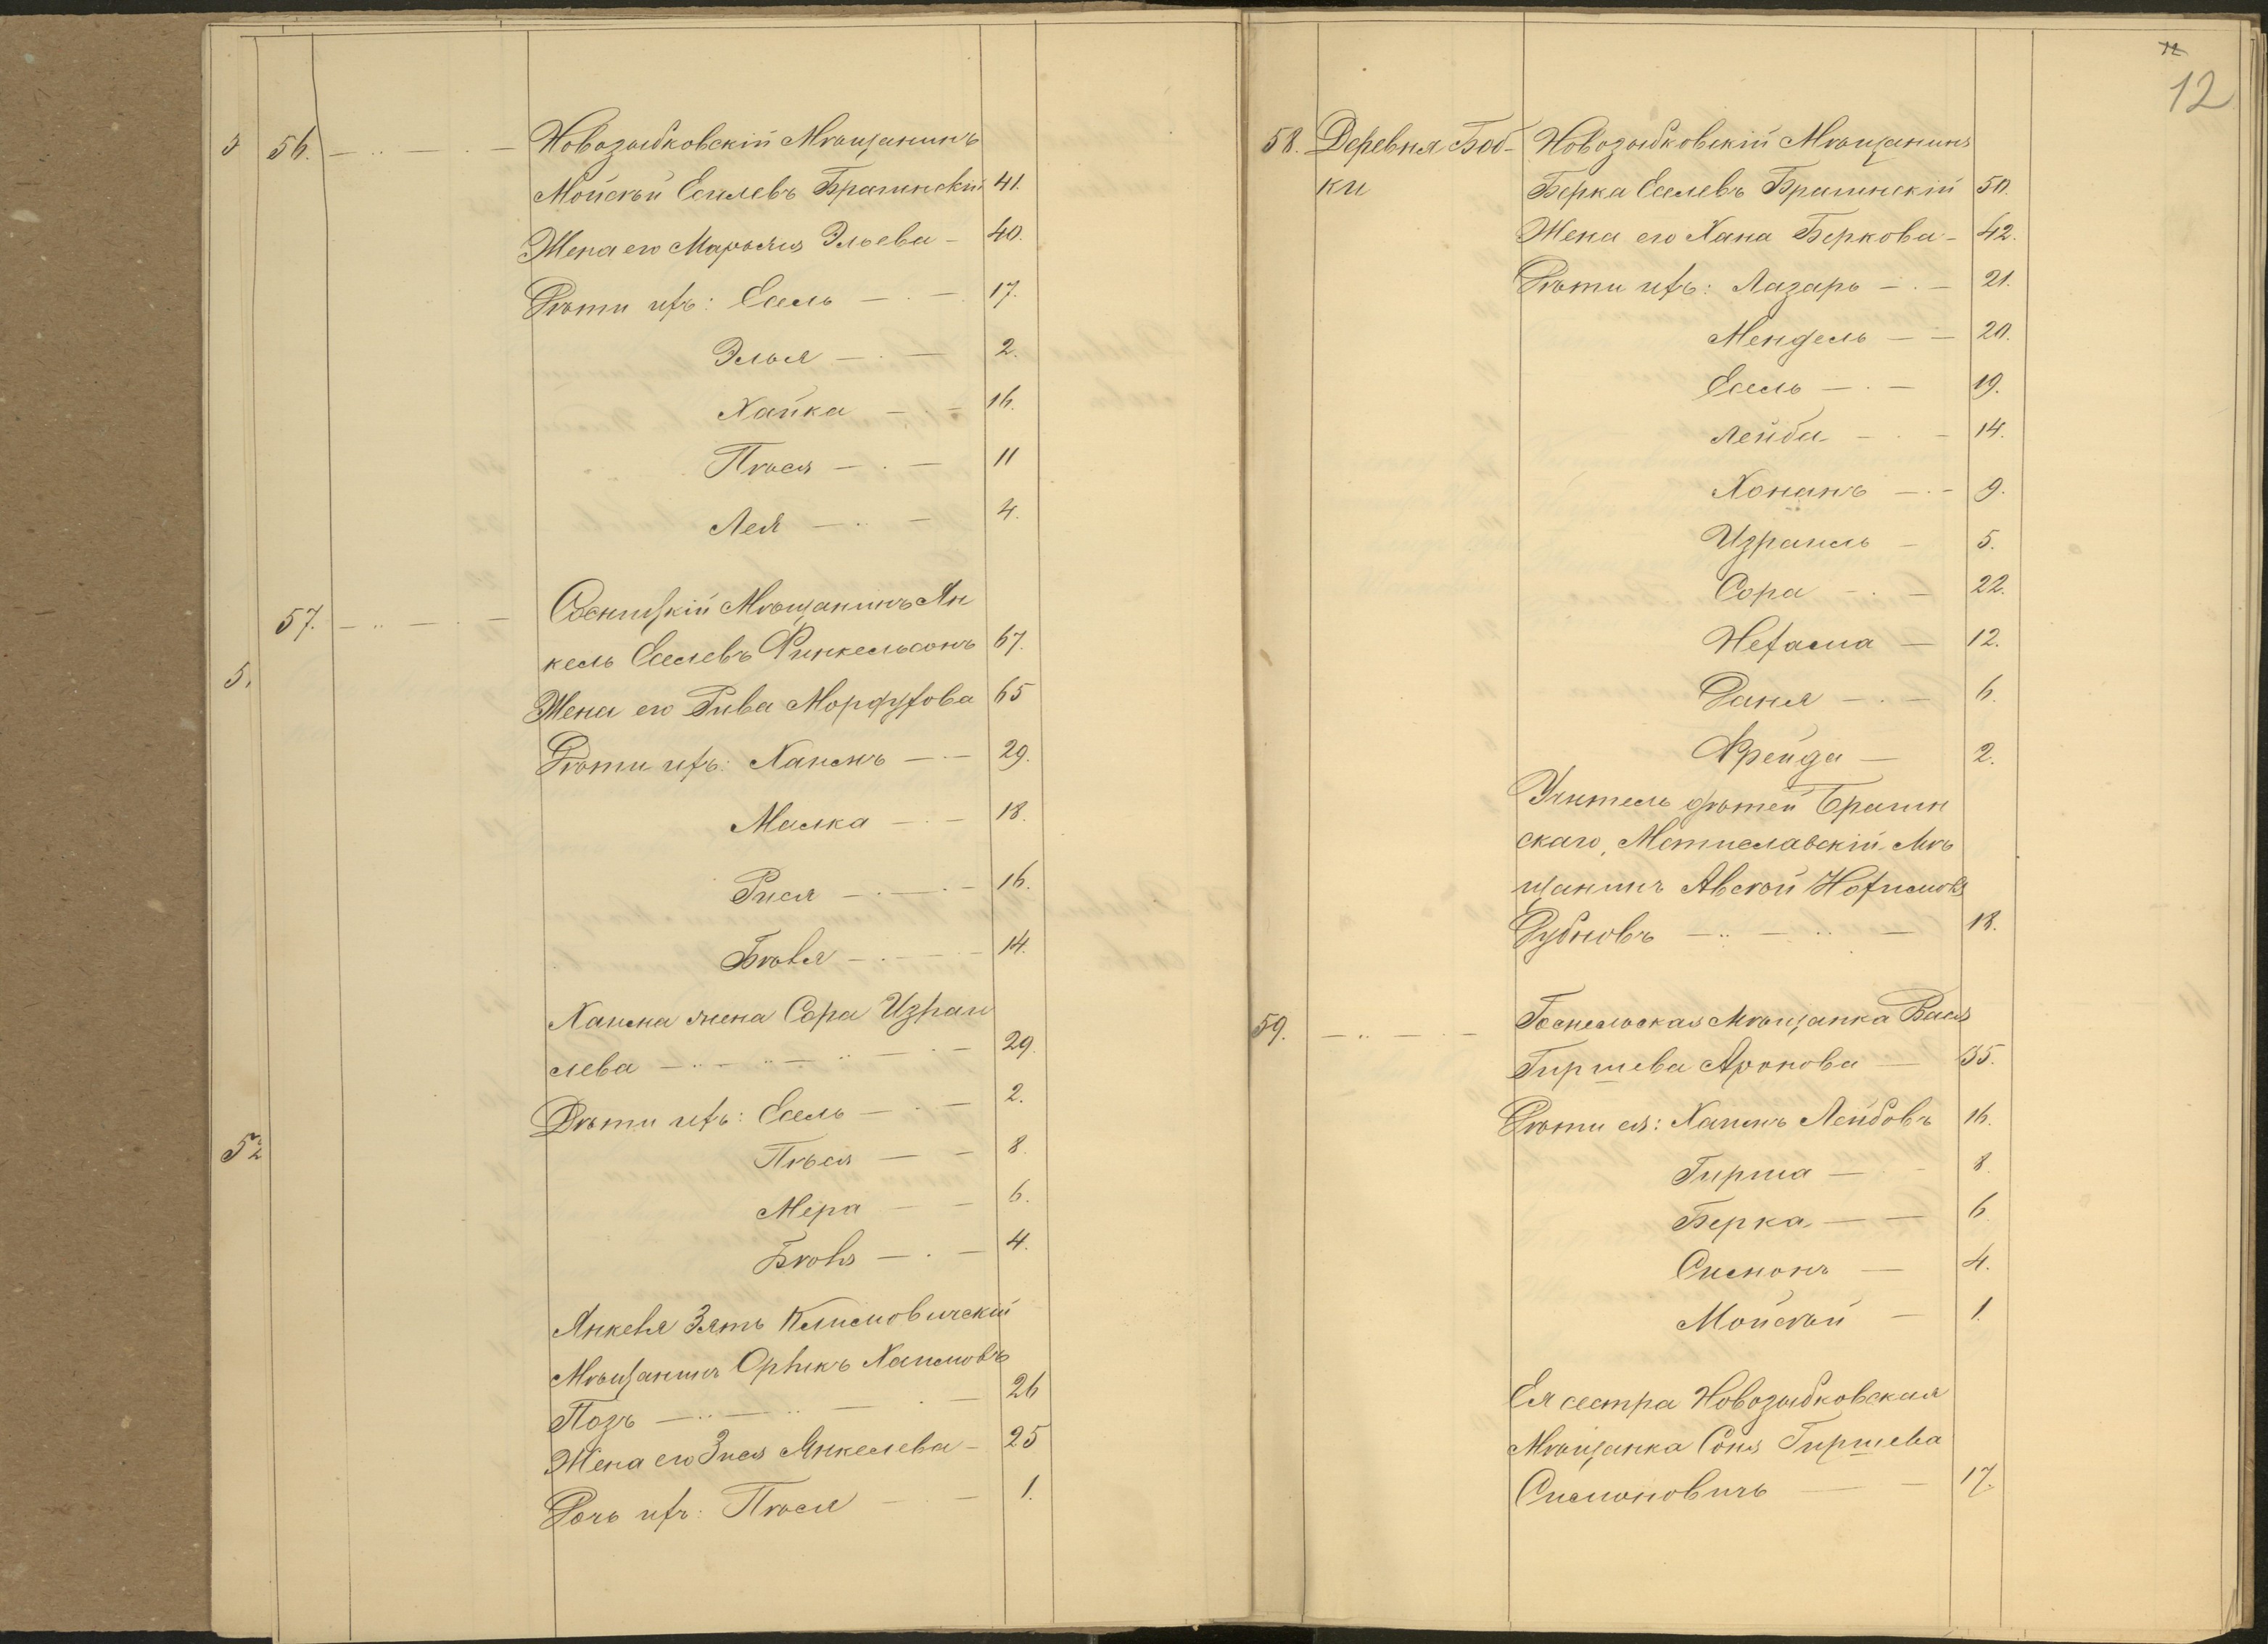 56. Новозыбковскій Мѣщанинъ
Мойсѣй Еселевъ Брагинскій 41.
Жена его Марьяся Эльева 40.
Дѣти ихъ: Есель 17.
Элья 2.
Хайка 16.
Пѣся 11
Лея 4.
57. Сосницкій Мѣщанинъ Ян
кель Еселевъ Финкельсонъ 67.
Жена его Рива Мордухова 65
Дѣти ихъ: Хаимъ 29.
Малка 18.
Рися 16.
Бѣля 14.
Хаима жена Сора Израи
лева 29.
Дѣти ихъ: Есель 2.
Пѣся 8.
Мера 6.
Бѣля 4.
Янкеля Зять Климовичскій
Мѣщанинъ Орликъ Хаимовъ
Позъ 26
Жена его Зися Янкелева 25
Дочь ихъ: Пѣся 1.
12
58. Деревня Боб- Новозыбковскій Мѣщанинъ
ки Берка Еселевъ Брагинскій 50.
Жена его Хана Беркова 42.
Дѣти ихъ: Лазарь 21.
Мендель 20.
Есель 19.
Лейба 14.
Хонанъ 9.
Израиль 5.
Сора 22.
Нехама 12.
Даня 6.
Фрейда 2.
Учитель дѣтей Брагин
скаго, Мстиславскій Мѣ
щанинъ Авсѣй Нохимовъ
Рубновъ 18.
59. Мѣщанка Вася
Гиршева Аронова 35.
Дѣти ея: Хаимъ Лейбовъ 16.
Гирша 8.
Берка 6
Симонъ 4.
Мойсѣй 1.
Ея сестра Новозыбковская
Мѣщанка Соня Гиршева
Симоновичъ 17.